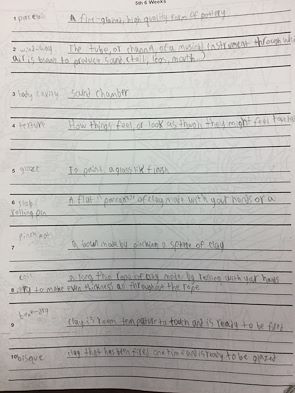 5th 6 Weeks
1 porcelain A fine-grained, high quality form of pottery
2 The tube, or channel of a musical instrument through which
air is blown to produce sound (tail, leg, mouth)
3 body cavity sound chamber
4 texture How things feel, or look as though they might feel touched
5 glaze To paint a glass like finish
6 slab A flat "pancake" of clay made with your hands or a
rolling pin
pinch pot
7 a bowl made by pinching a sphere of clay
coil a long thin rope of clay made by rolling with your hands
8 try to make even thickness as throughout the rope
bone-dry
9 clay is room temperature to touch and is ready to be fired
10 bisque clay that has been fired one time and is ready to be glazed